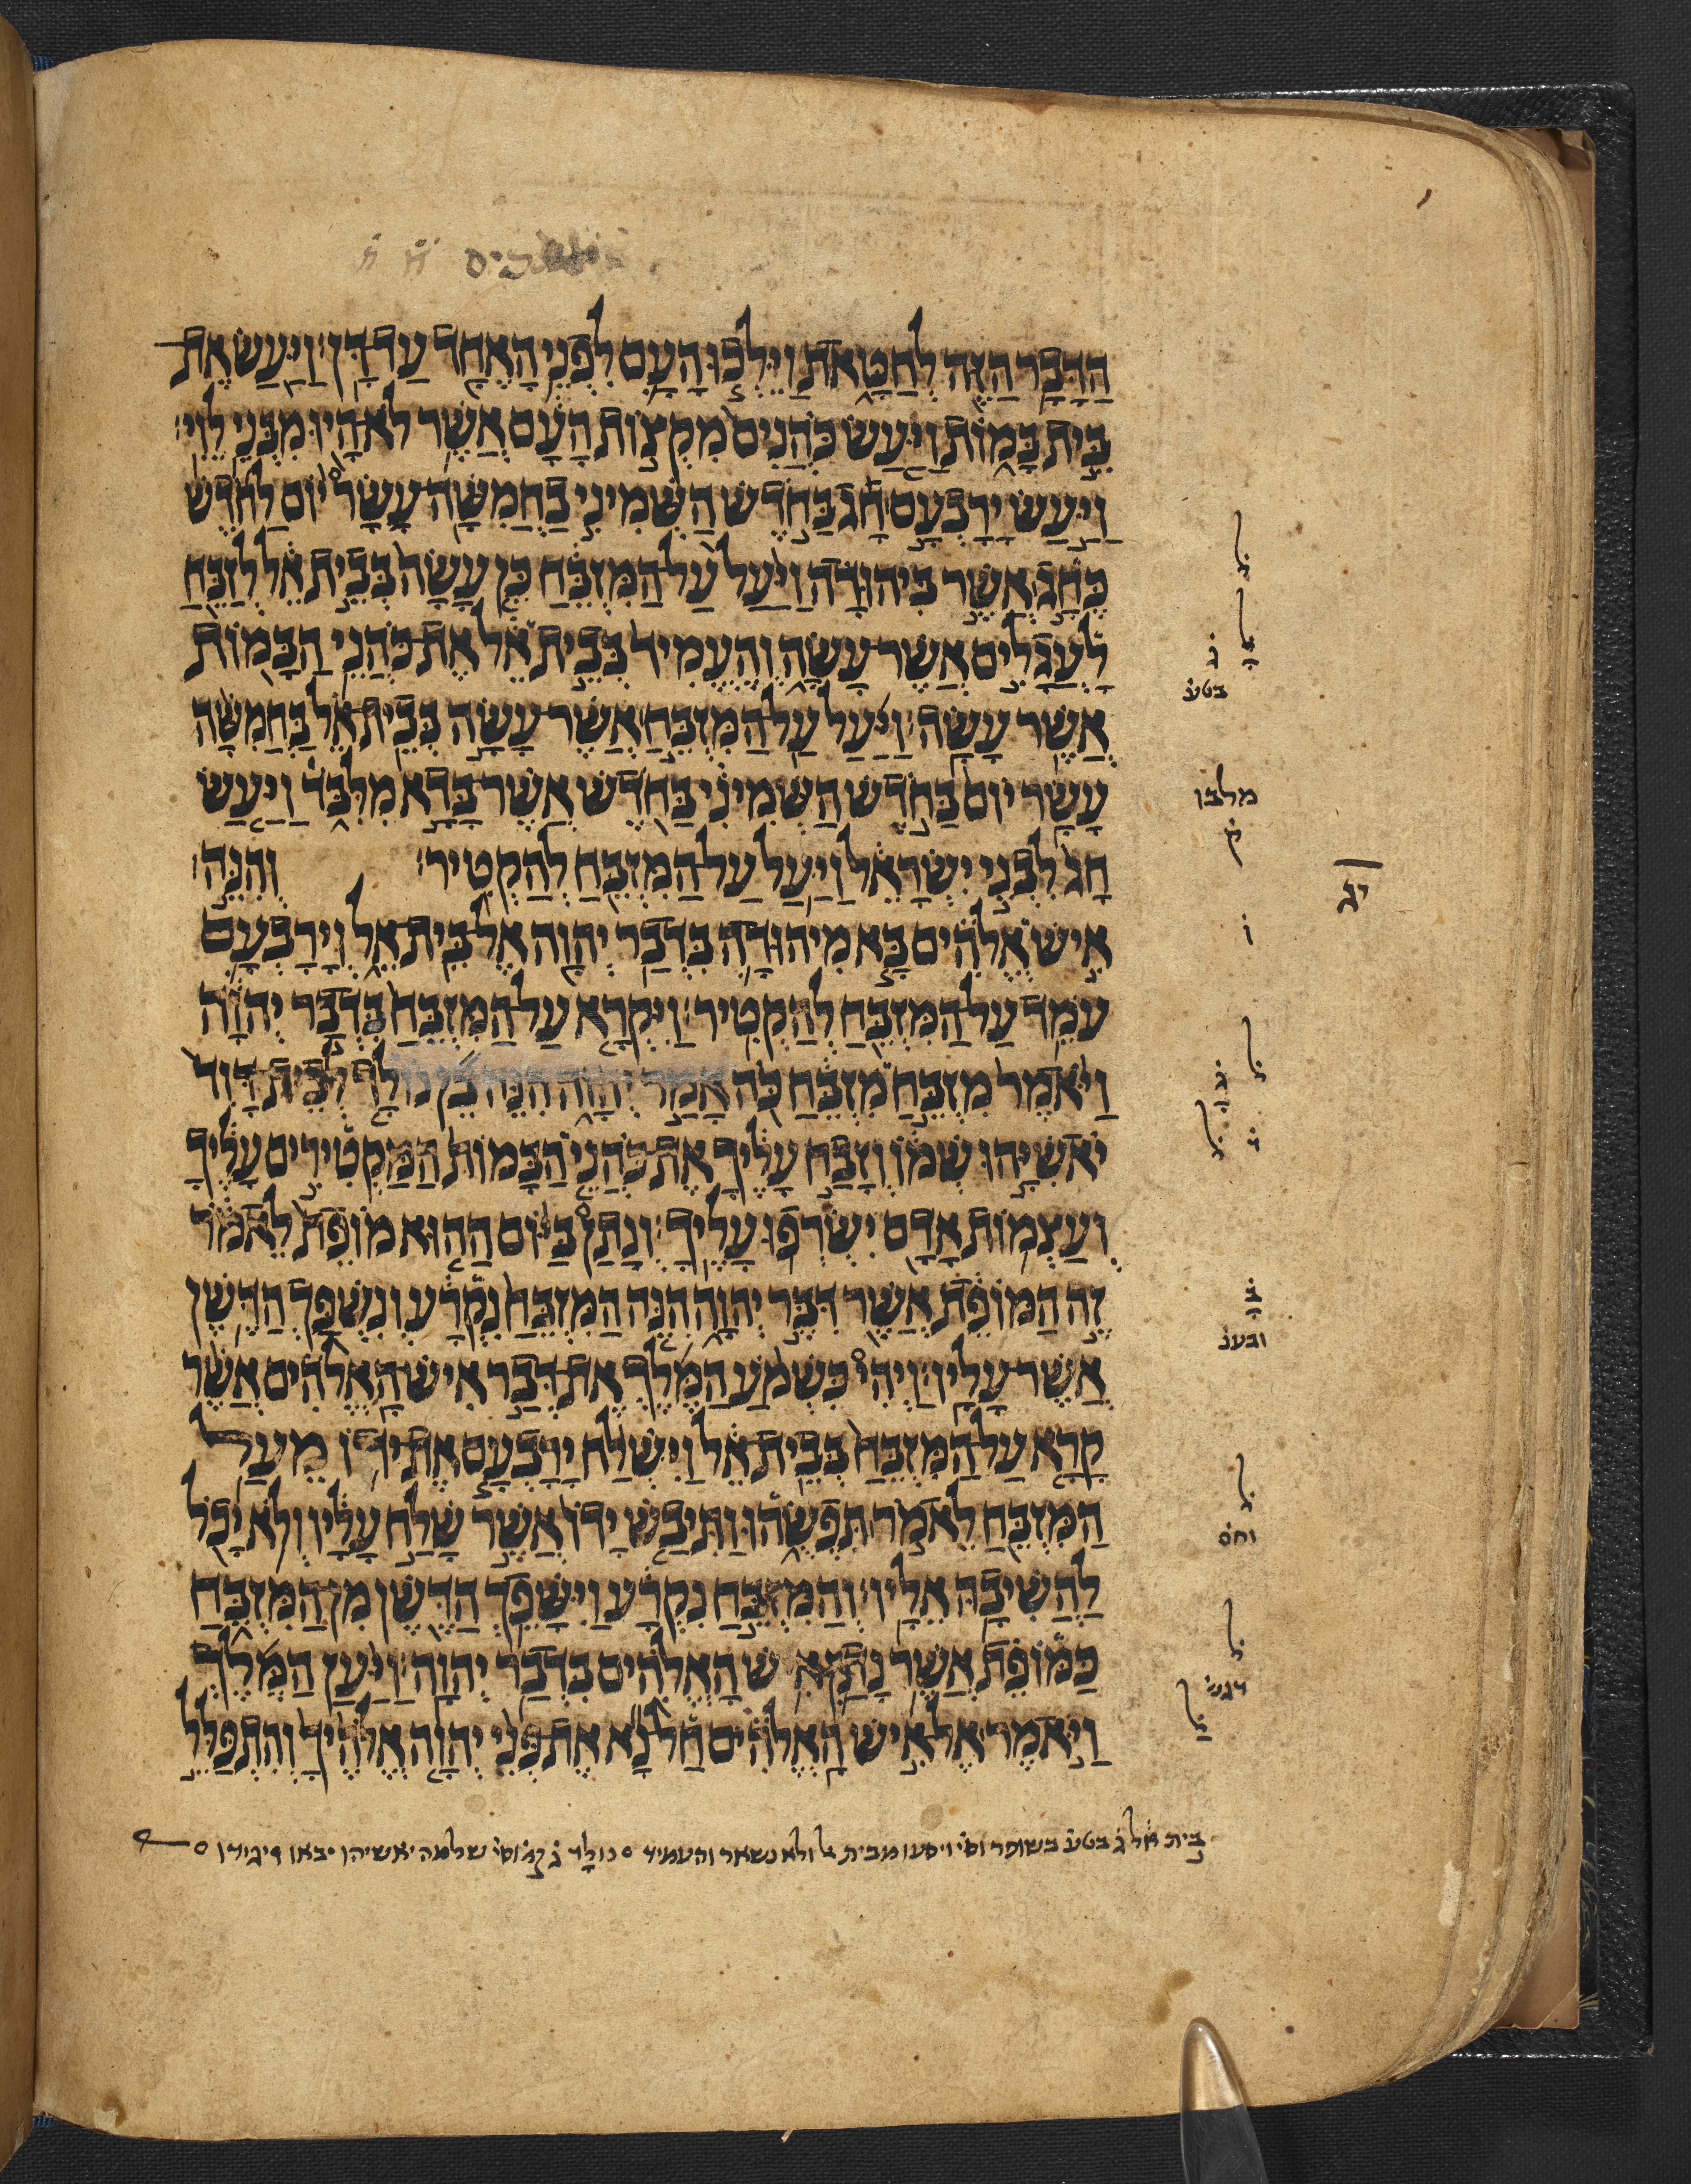 הַדָּבָר הַזֶּה לְחַטָּאת וַיֵּלְכוּ הָעָם לִפְנֵי הָאֶחָד עַד דָּן׃ וַיַּעַשׂ אֶת
בֵּית בָּמוֹת וַיַּעַשׂ כֹּהֲנִים מִקְצוֹת הָעָם אֲשֶׁר לֹא הָיוּ מִבְּנֵי לֵוִי׃
וַיַּעַשׂ יָרָבְעָם חָג בַּחֹדֶשׁ הַשְּׁמִינִי בַּחֲמִשָּׁה עָשָׂר יוֹם לַחֹדֶשׁ
כֶּחָג אֲשֶׁר בִּיהוּדָה וַיַּעַל עַל הַמִּזְבֵּחַ כֵּן עָשָׂה בְּבֵית אֵל לְזַבֵּחַ
לָעֲגָלִים אֲשֶׁר עָשָׂה וְהֶעֱמִיד בְּבֵית אֵל אֶת כֹּהֲנֵי הַבָּמוֹת
אֲשֶׁר עָשָׂה׃ וַיַּעַל עַל הַמִּזְבֵּחַ אֲשֶׁר עָשָׂה בְּבֵית אֵל בַּחֲמִשָּׁה
עָשָׂר יוֹם בַּחֹדֶשׁ הַשְּׁמִינִי בַּחֹדֶשׁ אֲשֶׁר בָּדָא מִלִּבַּד וַיַּעַשׂ
חָג לִבְנֵי יִשְׂרָאֵל וַיַּעַל עַל הַמִּזְבֵּחַ לְהַקְטִיר׃ וְהִנֵּה
אִישׁ אֱלֹהִים בָּא מִיהוּדָה בִּדְבַר יְהוָה אֶל בֵּית אֵל וְיָרָבְעָם
עֹמֵד עַל הַמִּזְבֵּחַ לְהַקְטִיר׃ וַיִּקְרָא עַל הַמִּזְבֵּחַ בִּדְבַר יְהוָה
וַיֹּאמֶר מִזְבֵּחַ מִזְבֵּחַ כֹּה אָמַר יְהוָה הִנֵּה בֵן נוֹלָד לְבֵית דָּוִד
יֹאשִׁיָּהוּ שְׁמוֹ וְזָבַח עָלֶיךָ אֶת כֹּהֲנֵי הַבָּמוֹת הַמַּקְטִירִים עָלֶיךָ
וְעַצְמוֹת אָדָם יִשְׂרְפוּ עָלֶיךָ׃ וְנָתַן בַּיּוֹם הַהוּא מוֹפֵת לֵאמֹר
זֶה הַמּוֹפֵת אֲשֶׁר דִּבֶּר יְהוָה הִנֵּה הַמִּזְבֵּחַ נִקְרָע וְנִשְׁפַּךְ הַדֶּשֶׁן
אֲשֶׁר עָלָיו׃ וַיְהִי כִשְׁמֹעַ הַמֶּלֶךְ אֶת דְּבַר אִישׁ הָאֱלֹהִים אֲשֶׁר
קָרָא עַל הַמִּזְבֵּחַ בְּבֵית אֵל וַיִּשְׁלַח יָרָבְעָם אֶת יָדוֹ מֵעַל
הַמִּזְבֵּחַ לֵאמֹר תִּפְשֻׂהוּ וַתִּיבַשׁ יָדוֹ אֲשֶׁר שָׁלַח עָלָיו וְלֹא יָכֹל
לַהֲשִׁיבָהּ אֵלָיו׃ וְהַמִּזְבֵּחַ נִקְרָע וַיִּשָּׁפֵךְ הַדֶּשֶׁן מִן הַמִּזְבֵּחַ
כַּמּוֹפֵת אֲשֶׁר נָתַן אִישׁ הָאֱלֹהִים בִּדְבַר יְהוָה׃ וַיַּעַן הַמֶּלֶךְ
וַיֹּאמֶר אֶל אִישׁ הָאֱלֹהִים חַל נָא אֶת פְּנֵי יְהוָה אֱלֹהֶיךָ וְהִתְפַּלֵּל
ל
ל
ג
בטע
מלבו
ק
יג
ל
ג
ל
ב
ובענ
ל
וחס
ל
דגש
ל
בית אל ג בטע בשופר וסי ויסעו מבית ולא נשאר והעמיד ס נולד ג וסי שלמה יאשיהו יבאו ויגידו ס